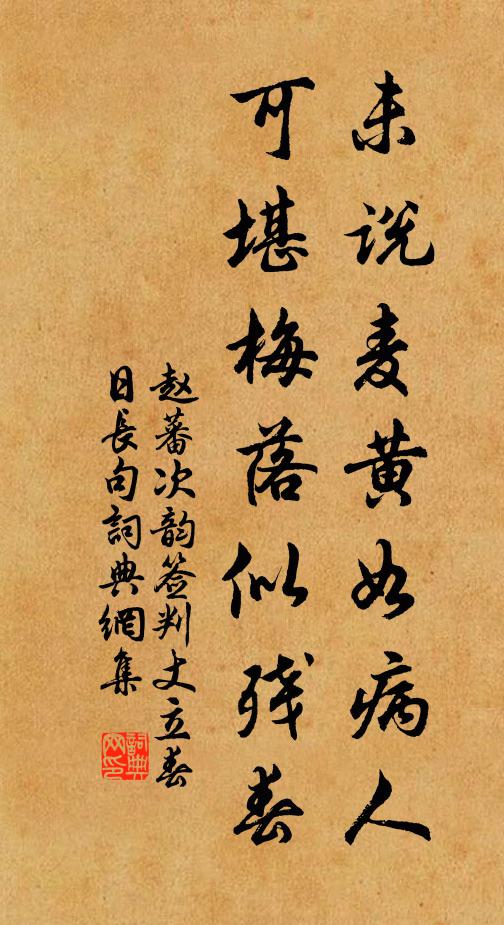 未说麦黄如病人
可堪梅落似残春
赵蕃次韵签判丈立春
日長句詞典網集
詞典网印